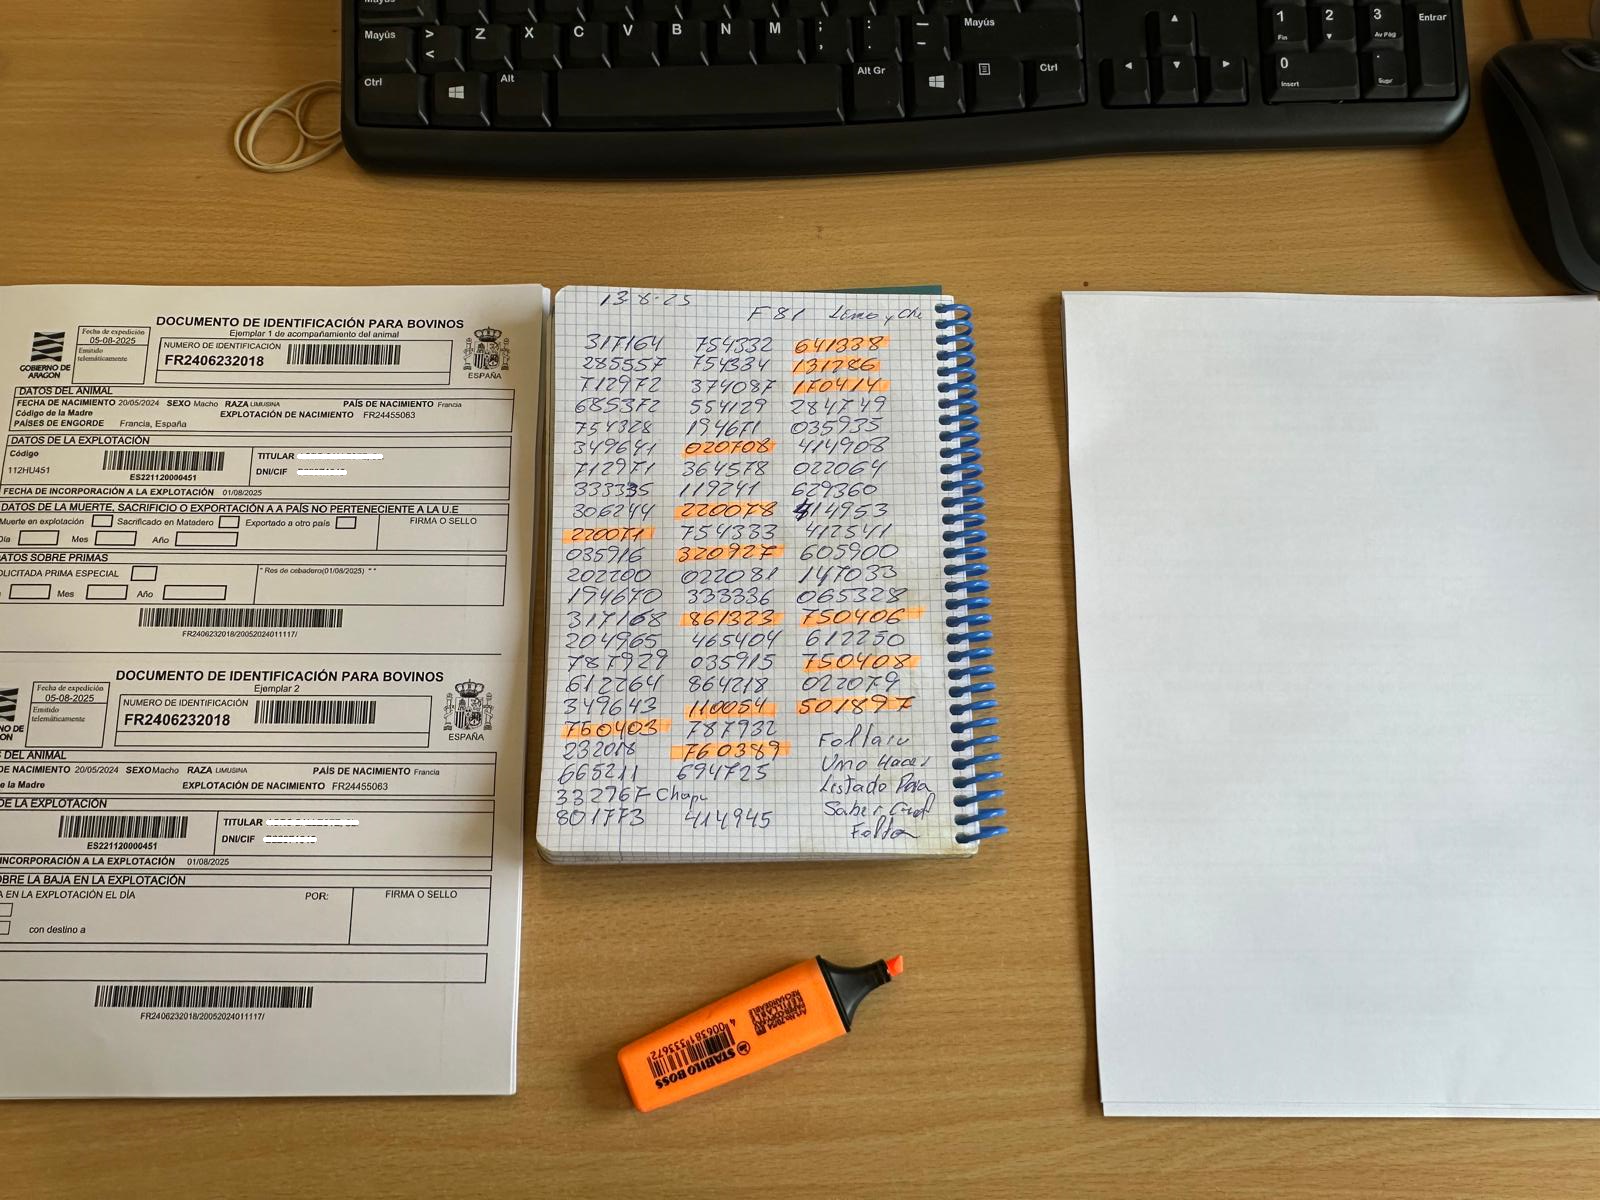 Mayús
>
<
Z
X
C
V
B
N
M
;
,
:
.
–
Mayús
1
Fin
2
3
Av Pág
Entrar
Ctrl
Alt
Alt Gr
Ctrl
0
Insert
.
Supr
GOBIERNO DE
ARAGON
Fecha de expedición
05-08-2025
Emitido
telemáticamente
DOCUMENTO DE IDENTIFICACIÓN PARA BOVINOS
Ejemplar 1 de acompañamiento del animal
NUMERO DE IDENTIFICACIÓN
FR2406232018
ESPAÑA
DATOS DEL ANIMAL
FECHA DE NACIMIENTO 20/05/2024 SEXO Macho RAZA LIMUSINA PAÍS DE NACIMIENTO Francia
Código de la Madre EXPLOTACIÓN DE NACIMIENTO FR24455063
PAÍSES DE ENGORDE Francia, España
DATOS DE LA EXPLOTACIÓN
Código
112HU451
ES221120000451
TITULAR
DNI/CIF
FECHA DE INCORPORACIÓN A LA EXPLOTACIÓN 01/08/2025
DATOS DE LA MUERTE, SACRIFICIO O EXPORTACIÓN A A PAÍS NO PERTENECIENTE A LA U.E
Muerte en explotación Sacrificado en Matadero Exportado a otro país FIRMA O SELLO
Día Mes Año
DATOS SOBRE PRIMAS
OLICITADA PRIMA ESPECIAL
" Res de cebadero(01/08/2025) " "
Mes Año
FR2406232018/20052024011117/
Fecha de expedición
05-08-2025
Emitido
telemáticamente
DOCUMENTO DE IDENTIFICACIÓN PARA BOVINOS
Ejemplar 2
NUMERO DE IDENTIFICACIÓN
FR2406232018
ESPAÑA
S DEL ANIMAL
DE NACIMIENTO 20/05/2024 SEXO Macho RAZA LIMUSINA PAÍS DE NACIMIENTO Francia
e la Madre EXPLOTACIÓN DE NACIMIENTO FR24455063
DE LA EXPLOTACIÓN
ES221120000451
TITULAR
DNI/CIF
INCORPORACIÓN A LA EXPLOTACIÓN 01/08/2025
OBRE LA BAJA EN LA EXPLOTACIÓN
A EN LA EXPLOTACIÓN EL DÍA POR: FIRMA O SELLO
con destino a
FR2406232018/20052024011117/
13-8-25
F 81
317164 754332 641338
285557 754334 131286
712972 374087 170414
685372 554129 284749
754328 194671 035935
349641 020708 414908
712971 364578 022064
333335 119241 629360
306244 220078 414953
220071 754333 412541
035916 320927 605900
202200 022081 147033
194670 333336 065328
317168 861323 750406
204965 465404 612250
787929 035915 750408
612264 864218 022079
349643 110054 501897
750403 787932
232018 760389
665211 694725
332967
801773 414945
Uno Hacer
Listado Para
Saber
Faltan
STABILO BOSS
4 006381 333672
Art.No.70/54
PAPER-COPY-FAX
REFILLABLE
RECHARGEABLE